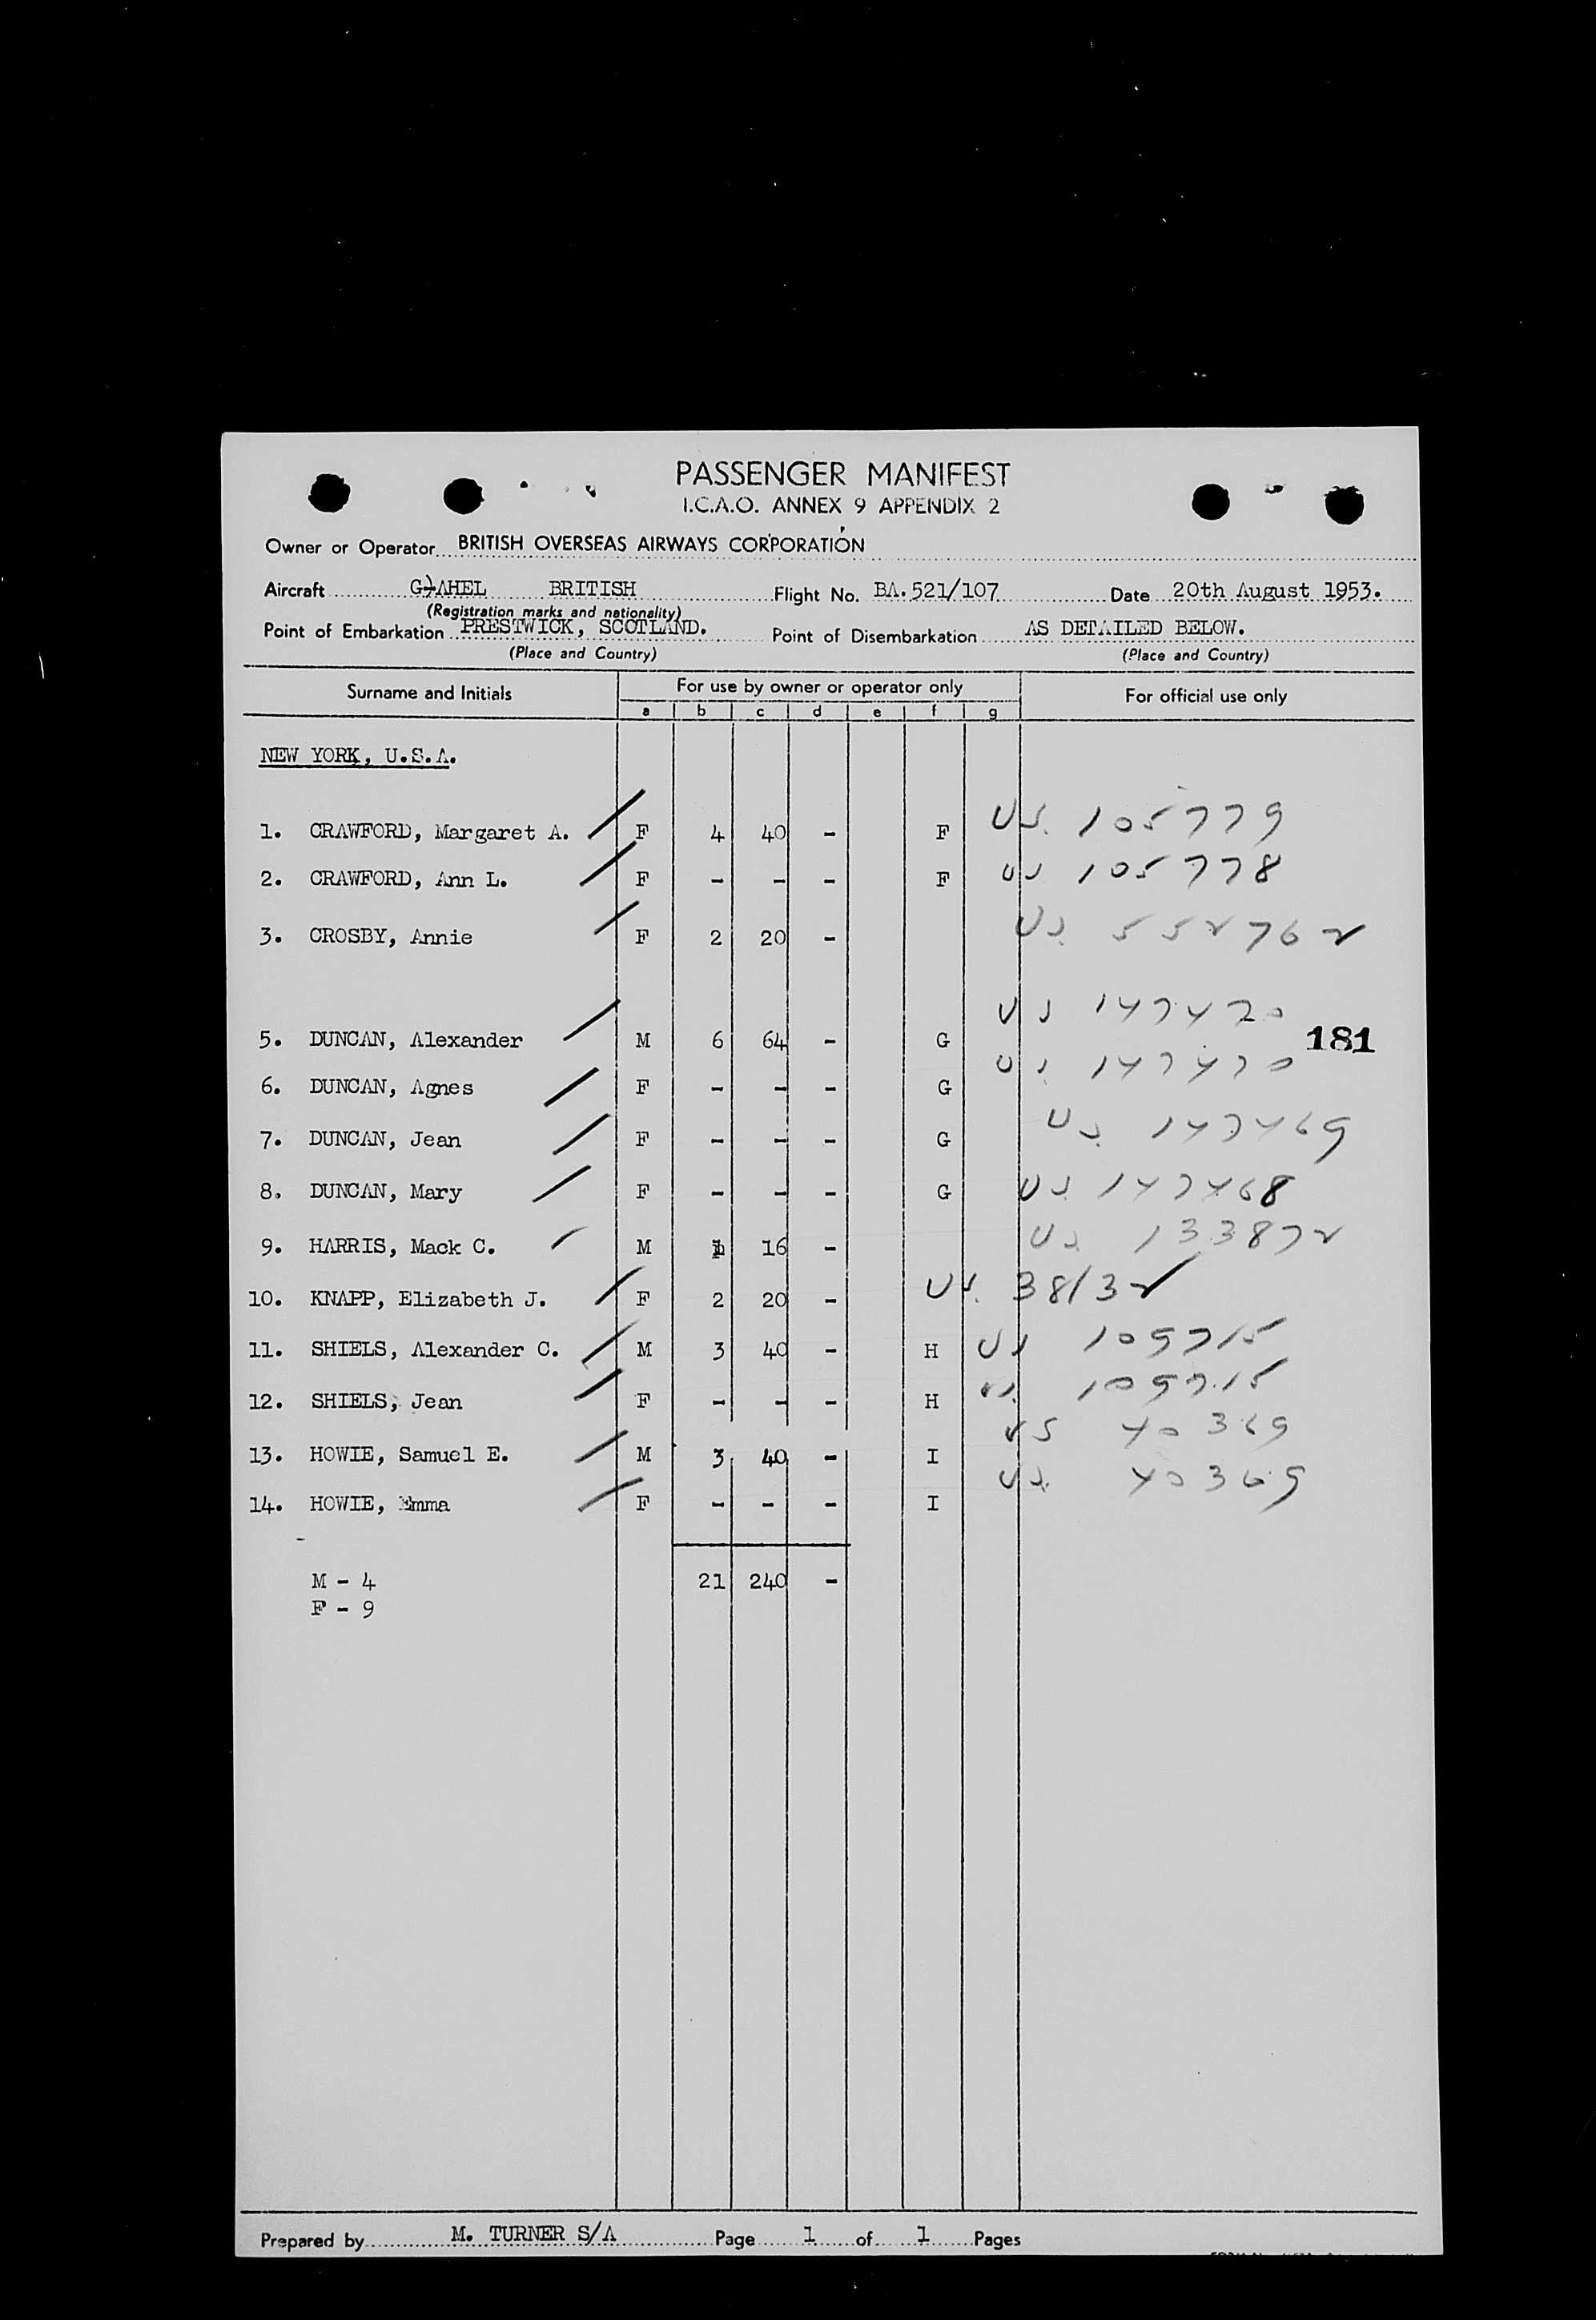 PASSENGER MANIFEST
I.C.A.O. ANNEX 9 APPENDIX 2
Owner or Operator BRITISH OVERSEAS AIRWAYS CORPORATION
Aircraft G-AHEL BRITISH Flight No. BA.521/107 Date 20th August 1953.
(Registration marks and nationality)
Point of Embarkation PRESTWICK, SCOTLAND. Point of Disembarkation AS DETAILED BELOW.
(Place and Country) (Place and Country)
Surname and Initials For use by owner or operator only For official use only
a b c d e f g
NEW YORK, U.S.A.
1. CRAWFORD, Margaret A. F 4 40 - F US. 105779
2. CRAWFORD, Ann L. F - - - F US 105778
3. CROSBY, Annie F 2 20 - US 552762
5. DUNCAN, Alexander M 6 64 - G US 147470
181
6. DUNCAN, Agnes F - - - G US 147470
7. DUNCAN, Jean F - - - G US 147469
8. DUNCAN, Mary F - - - G US 147468
9. HARRIS, Mack C. M 1 16 - US 133872
10. KNAPP, Elizabeth J. F 2 20 - US. 38132
11. SHIELS, Alexander C. M 3 40 - H US 109715
12. SHIELS, Jean F - - - H US 109715
13. HOWIE, Samuel E. M 3 40 - I US 40369
14. HOWIE, Emma F - - - I US. 40369
M - 4 21 240 -
F - 9
Prepared by M. TURNER S/A Page 1 of 1 Pages